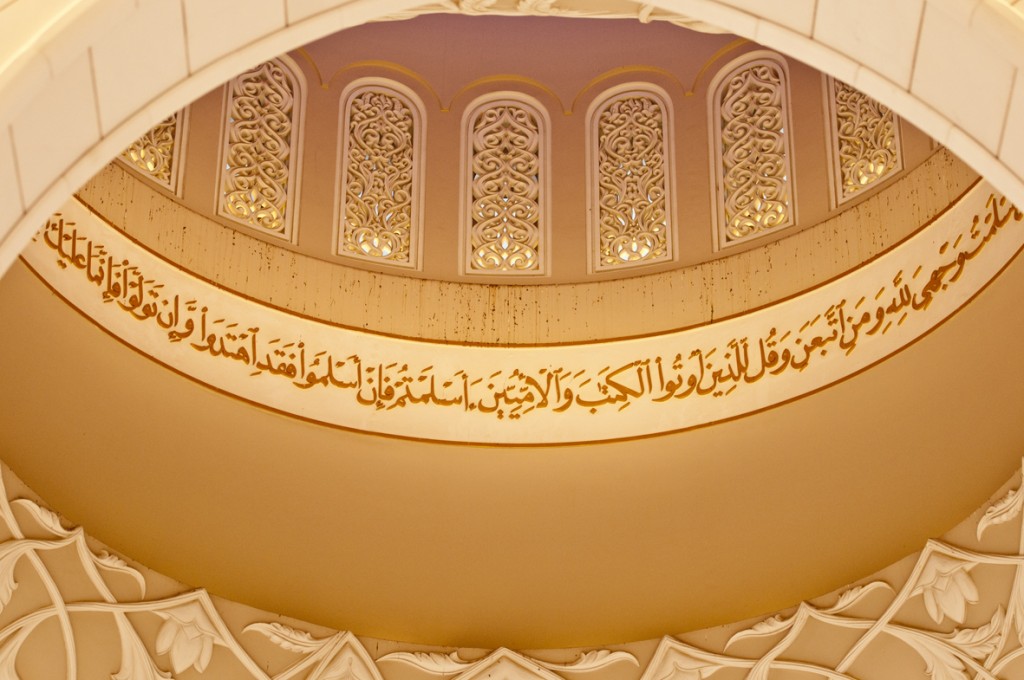 أسلمت وجهى لله ومن ٱتبعن وقل للذين أوتوا۟ ٱلكتٰب وٱلأميين ءأسلمتم فإن أسلموا۟ فقد ٱهتدوا۟ وإن تولوا۟ فإنما عليك